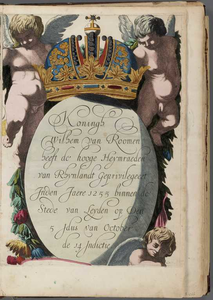 Koningh
Wilhem van Roomen
heeft de hooge Heymraeden
van Rhynlandt Geprivilegeert
Inden Jaere 1255 binnen de
Stede van Leyden op den
5 Idus van October
de 14 Indictie